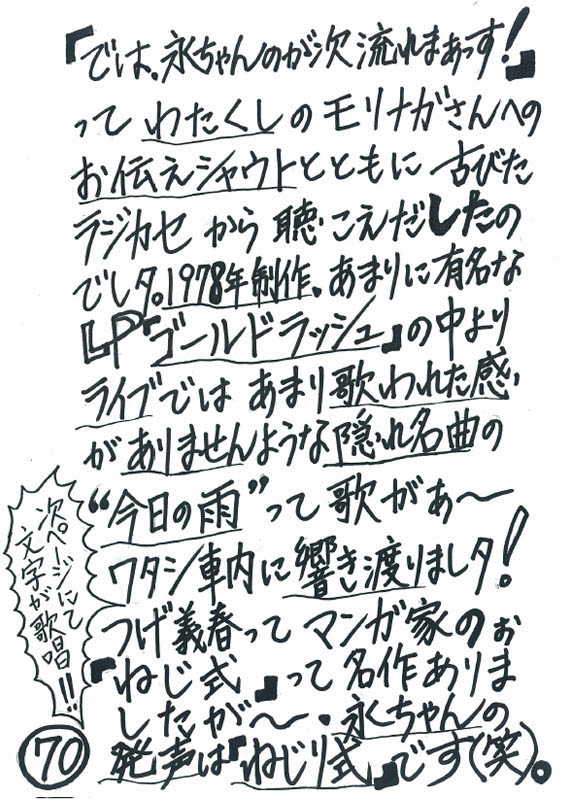 『では。永ちゃんのが次流れまぁっす!』
ってわたくしのモリナガさんへの
お伝えシャウトとともに古びた
ラジカセから聴こえだしたの
でしタ。1978年制作。あまりに有名な
LP『ゴールドラッシュ』の中より
ライブではあまり歌われた感
がありませんような隠れ名曲の
“今日の雨”って歌がぁ〜
ワタシ車内に響き渡りましタ!
つげ義春ってマンガ家のぉ
『ねじ式』って名作ありま
したが〜・永ちゃんの
発声は『ねじり式』です(笑)。
次ページにて
文字が歌唱!!
70